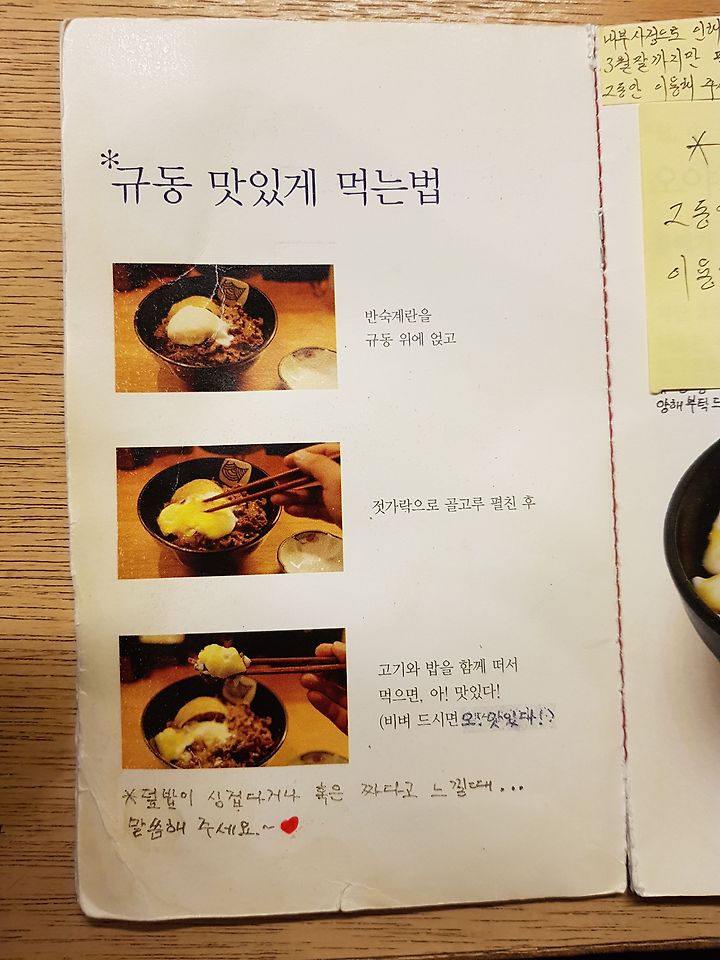 *규동 맛있게 먹는법
반숙계란을
규동 위에 얹고
젓가락으로 골고루 펼친 후
고기와 밥을 함께 떠서
먹으면, 아! 맛있다!
(비벼 드시면 오! 맛있다!)
*덮밥이 싱겁다거나 혹은 짜다고 느낄때...
말씀해 주세요.~♥
내부사정으로 인해
3월말까지만
그동안 이용해 주
*
그동안
이용
양해 부탁드